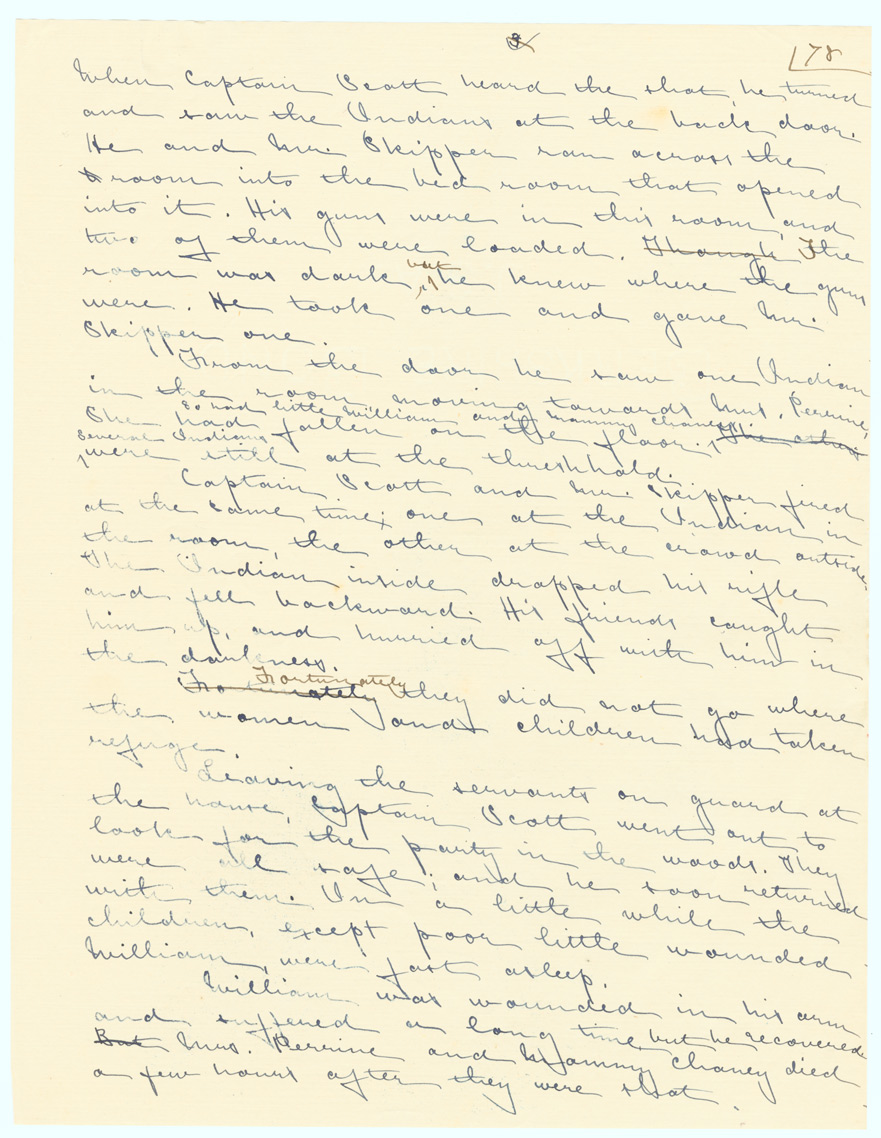 3
178
When Captain Scott heard the shot, he turned
and saw the Indians at the back door.
He and Mr. Skipper ran across the
room into the bed room that opened
into it. His guns were in this room, and
two of them were loaded. Though The
room was dark, but he knew where the guns
were. He took one and gave Mr.
Skipper one.
From the door he saw one Indian
in the room moving towards Mrs. Perrine,
So had little William and mammy Chaney.
She had fallen on the floor. The others
several Indians
were still at the threshhold.
Captain Scott and Mr. Skipper fired
at the same time; one at the Indian in
the room, the other at the crowd outside.
The Indian inside dropped his rifle
and fell backward. His friends caught
him up, and hurried off with him in
the darkness.
Fortunately
Fortunately they did not go where
the women and children had taken
refuge.
Leaving the servants on guard at
the house, Captain Scott went out to
look for the party in the woods. They
were all safe; and he soon returned
with them. In a little while the
children, except poor little wounded
William, were fast asleep.
William was wounded in his arm
and suffered a long time, but he recovered.
But Mrs. Perrine and Mammy Chaney died
a few hours after they were shot.